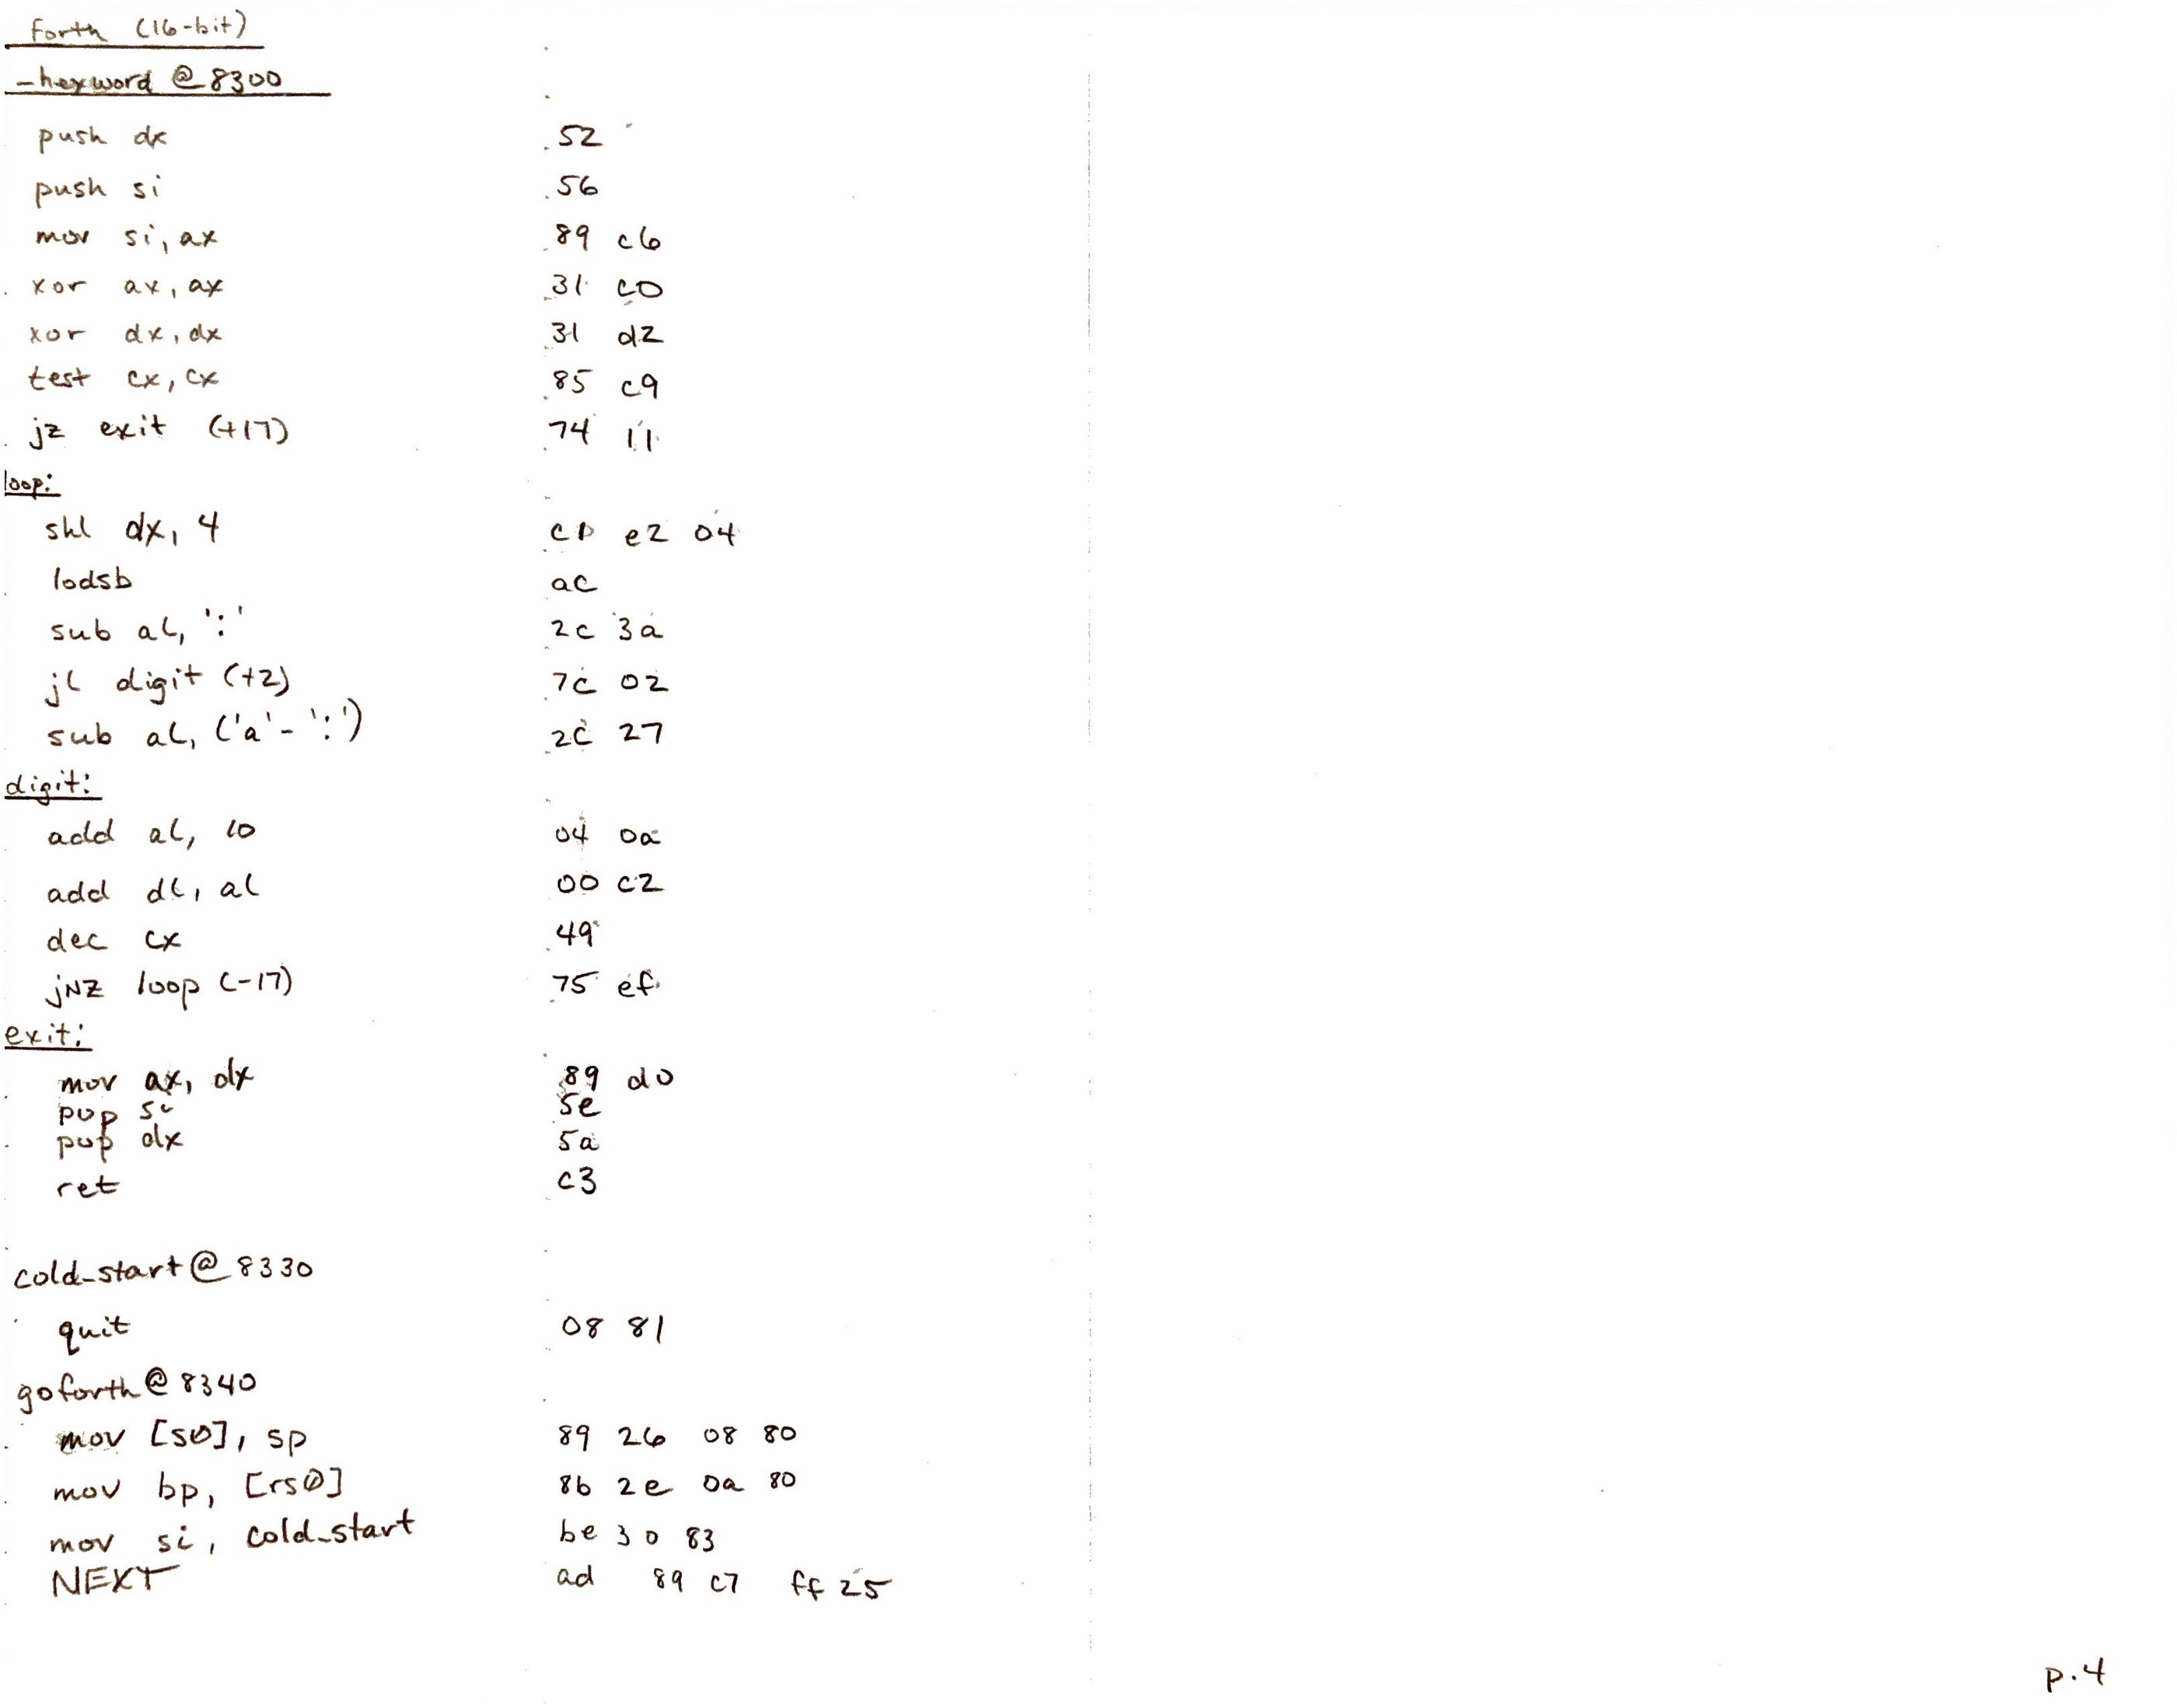 forth (16-bit)
_hexword @ 8300
push dx 52
push si 56
mov si, ax 89 c6
xor ax, ax 31 c0
xor dx, dx 31 d2
test cx, cx 85 c9
jz exit (+17) 74 11
loop:
shl dx, 4 c1 e2 04
lodsb ac
sub al, ':' 2c 3a
jl digit (+2) 7c 02
sub al, ('a' - ':') 2c 27
digit:
add al, 10 04 0a
add dl, al 00 c2
dec cx 49
jNZ loop (-17) 75 ef
exit:
mov ax, dx 89 d0
pop si 5e
pop dx 5a
ret c3
cold_start @ 8330
quit 08 81
goforth @ 8340
mov [s0], sp 89 26 08 80
mov bp, [rs0] 8b 2e 0a 80
mov si, cold_start be 30 83
NEXT ad 89 c7 ff 25
p.4